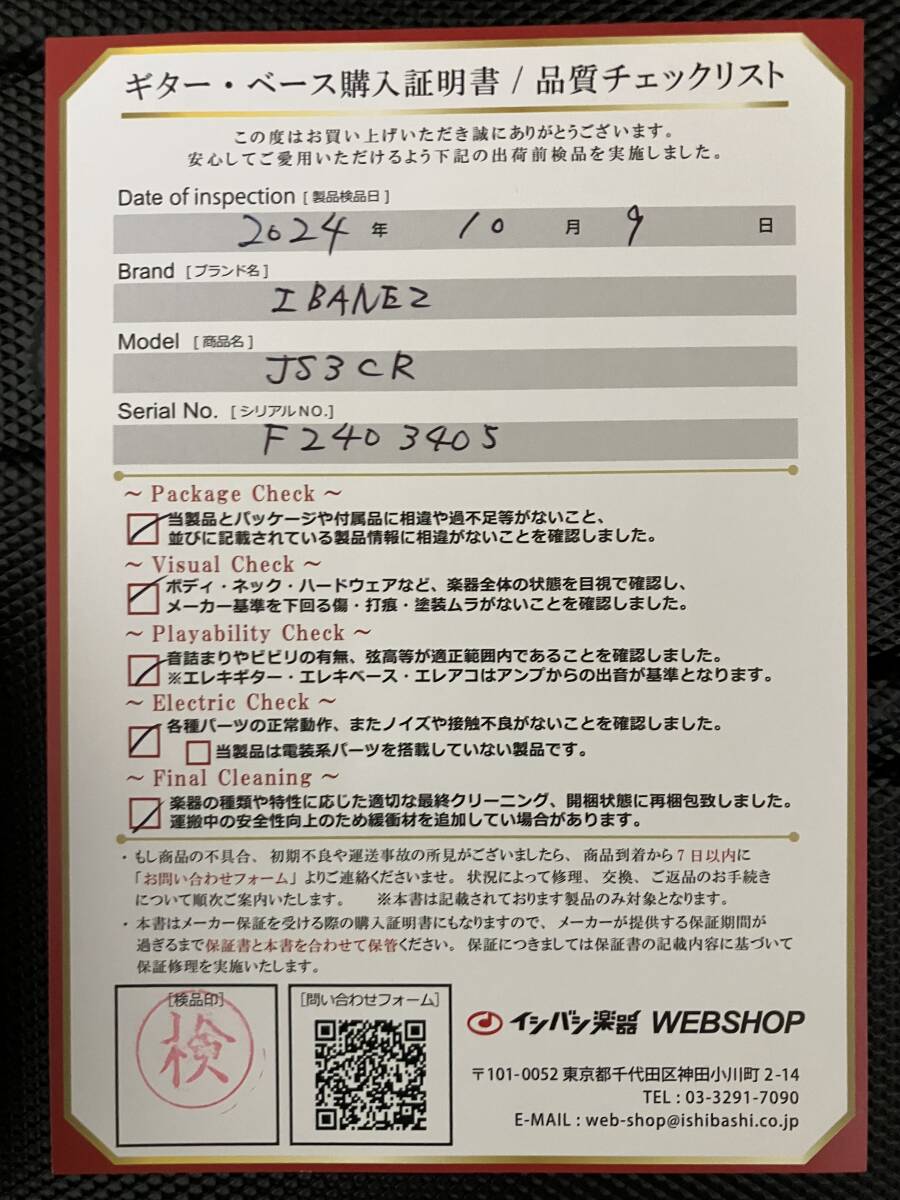 ギター・ベース購入証明書 / 品質チェックリスト
この度はお買い上げいただき誠にありがとうございます。
安心してご愛用いただけるよう下記の出荷前検品を実施しました。
Date of inspection [ 製品検品日 ]
2024 年 10 月 9 日
Brand [ ブランド名 ]
IBANEZ
Model [ 商品名 ]
JS3CR
Serial No. [ シリアルNO.]
F2403405
～ Package Check ～
当製品とパッケージや付属品に相違や過不足等がないこと、
並びに記載されている製品情報に相違がないことを確認しました。
～ Visual Check ～
ボディ・ネック・ハードウェアなど、楽器全体の状態を目視で確認し、
メーカー基準を下回る傷・打痕・塗装ムラがないことを確認しました。
～ Playability Check ～
音詰まりやビビリの有無、弦高等が適正範囲内であることを確認しました。
※エレキギター・エレキベース・エレアコはアンプからの出音が基準となります。
～ Electric Check ～
各種パーツの正常動作、またノイズや接触不良がないことを確認しました。
当製品は電装系パーツを搭載していない製品です。
～ Final Cleaning ～
楽器の種類や特性に応じた適切な最終クリーニング、開梱状態に再梱包致しました。
運搬中の安全性向上のため緩衝材を追加してい場合があります。
・もし商品の不具合、初期不良や運送事故の所見がございましたら、商品到着から7日以内に
「お問い合わせフォーム」よりご連絡くださいませ。状況によって修理、交換、ご返品のお手続き
について順次ご案内いたします。 ※本書は記載されております製品のみ対象となります。
・本書はメーカー保証を受ける際の購入証明書にもなりますので、メーカーが提供する保証期間が
過ぎるまで保証書と本書を合わせて保管ください。保証につきましては保証書の記載内容に基づいて
保証修理を実施いたします。
[検品印]
検
[問い合わせフォーム]
イシバシ楽器 WEBSHOP
〒101-0052 東京都千代田区神田小川町 2-14
TEL : 03-3291-7090
E-MAIL : web-shop@ishibashi.co.jp